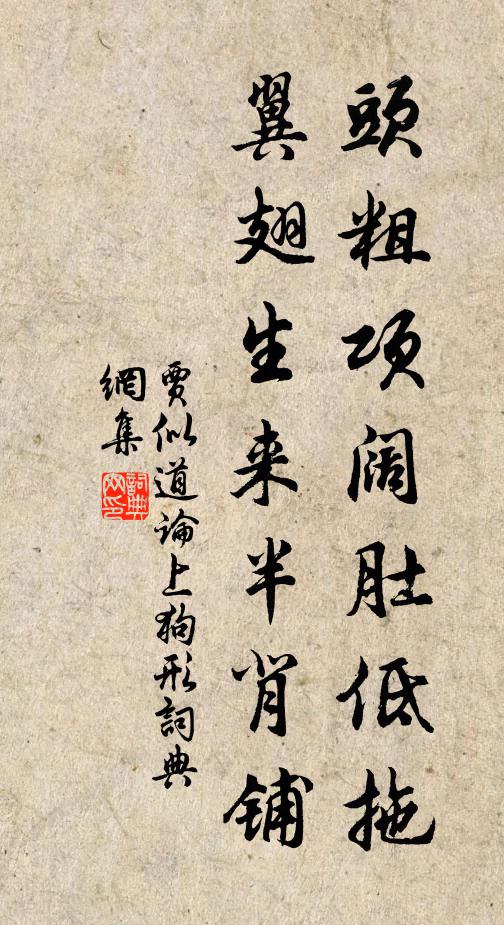 頭粗项阔肚低拖
翼翅生来半背铺
賈似道論上狗形詞典
網集
詞典